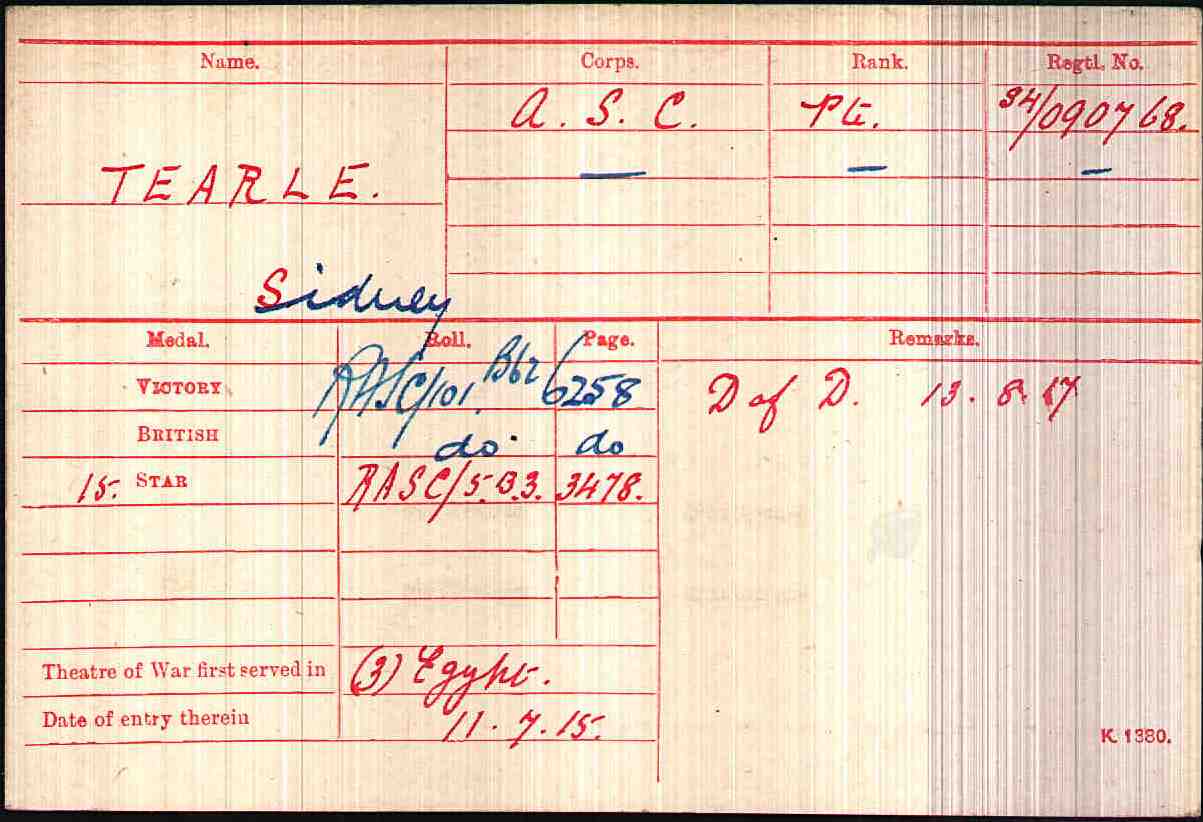 Name. Corps. Rank. Regtl. No.
A. S. C. Pte. S4/090768.
TEARLE. — — —
Sidney
Medal. Roll. Page. Remarks.
VICTORY RASC/101 B62 6258 D of D. 13.8.17
BRITISH do. do
15. STAR RASC/5.B.3. 3478.
Theatre of War first served in (3) Egypt.
Date of entry therein 11.7.15.
K. 1380.